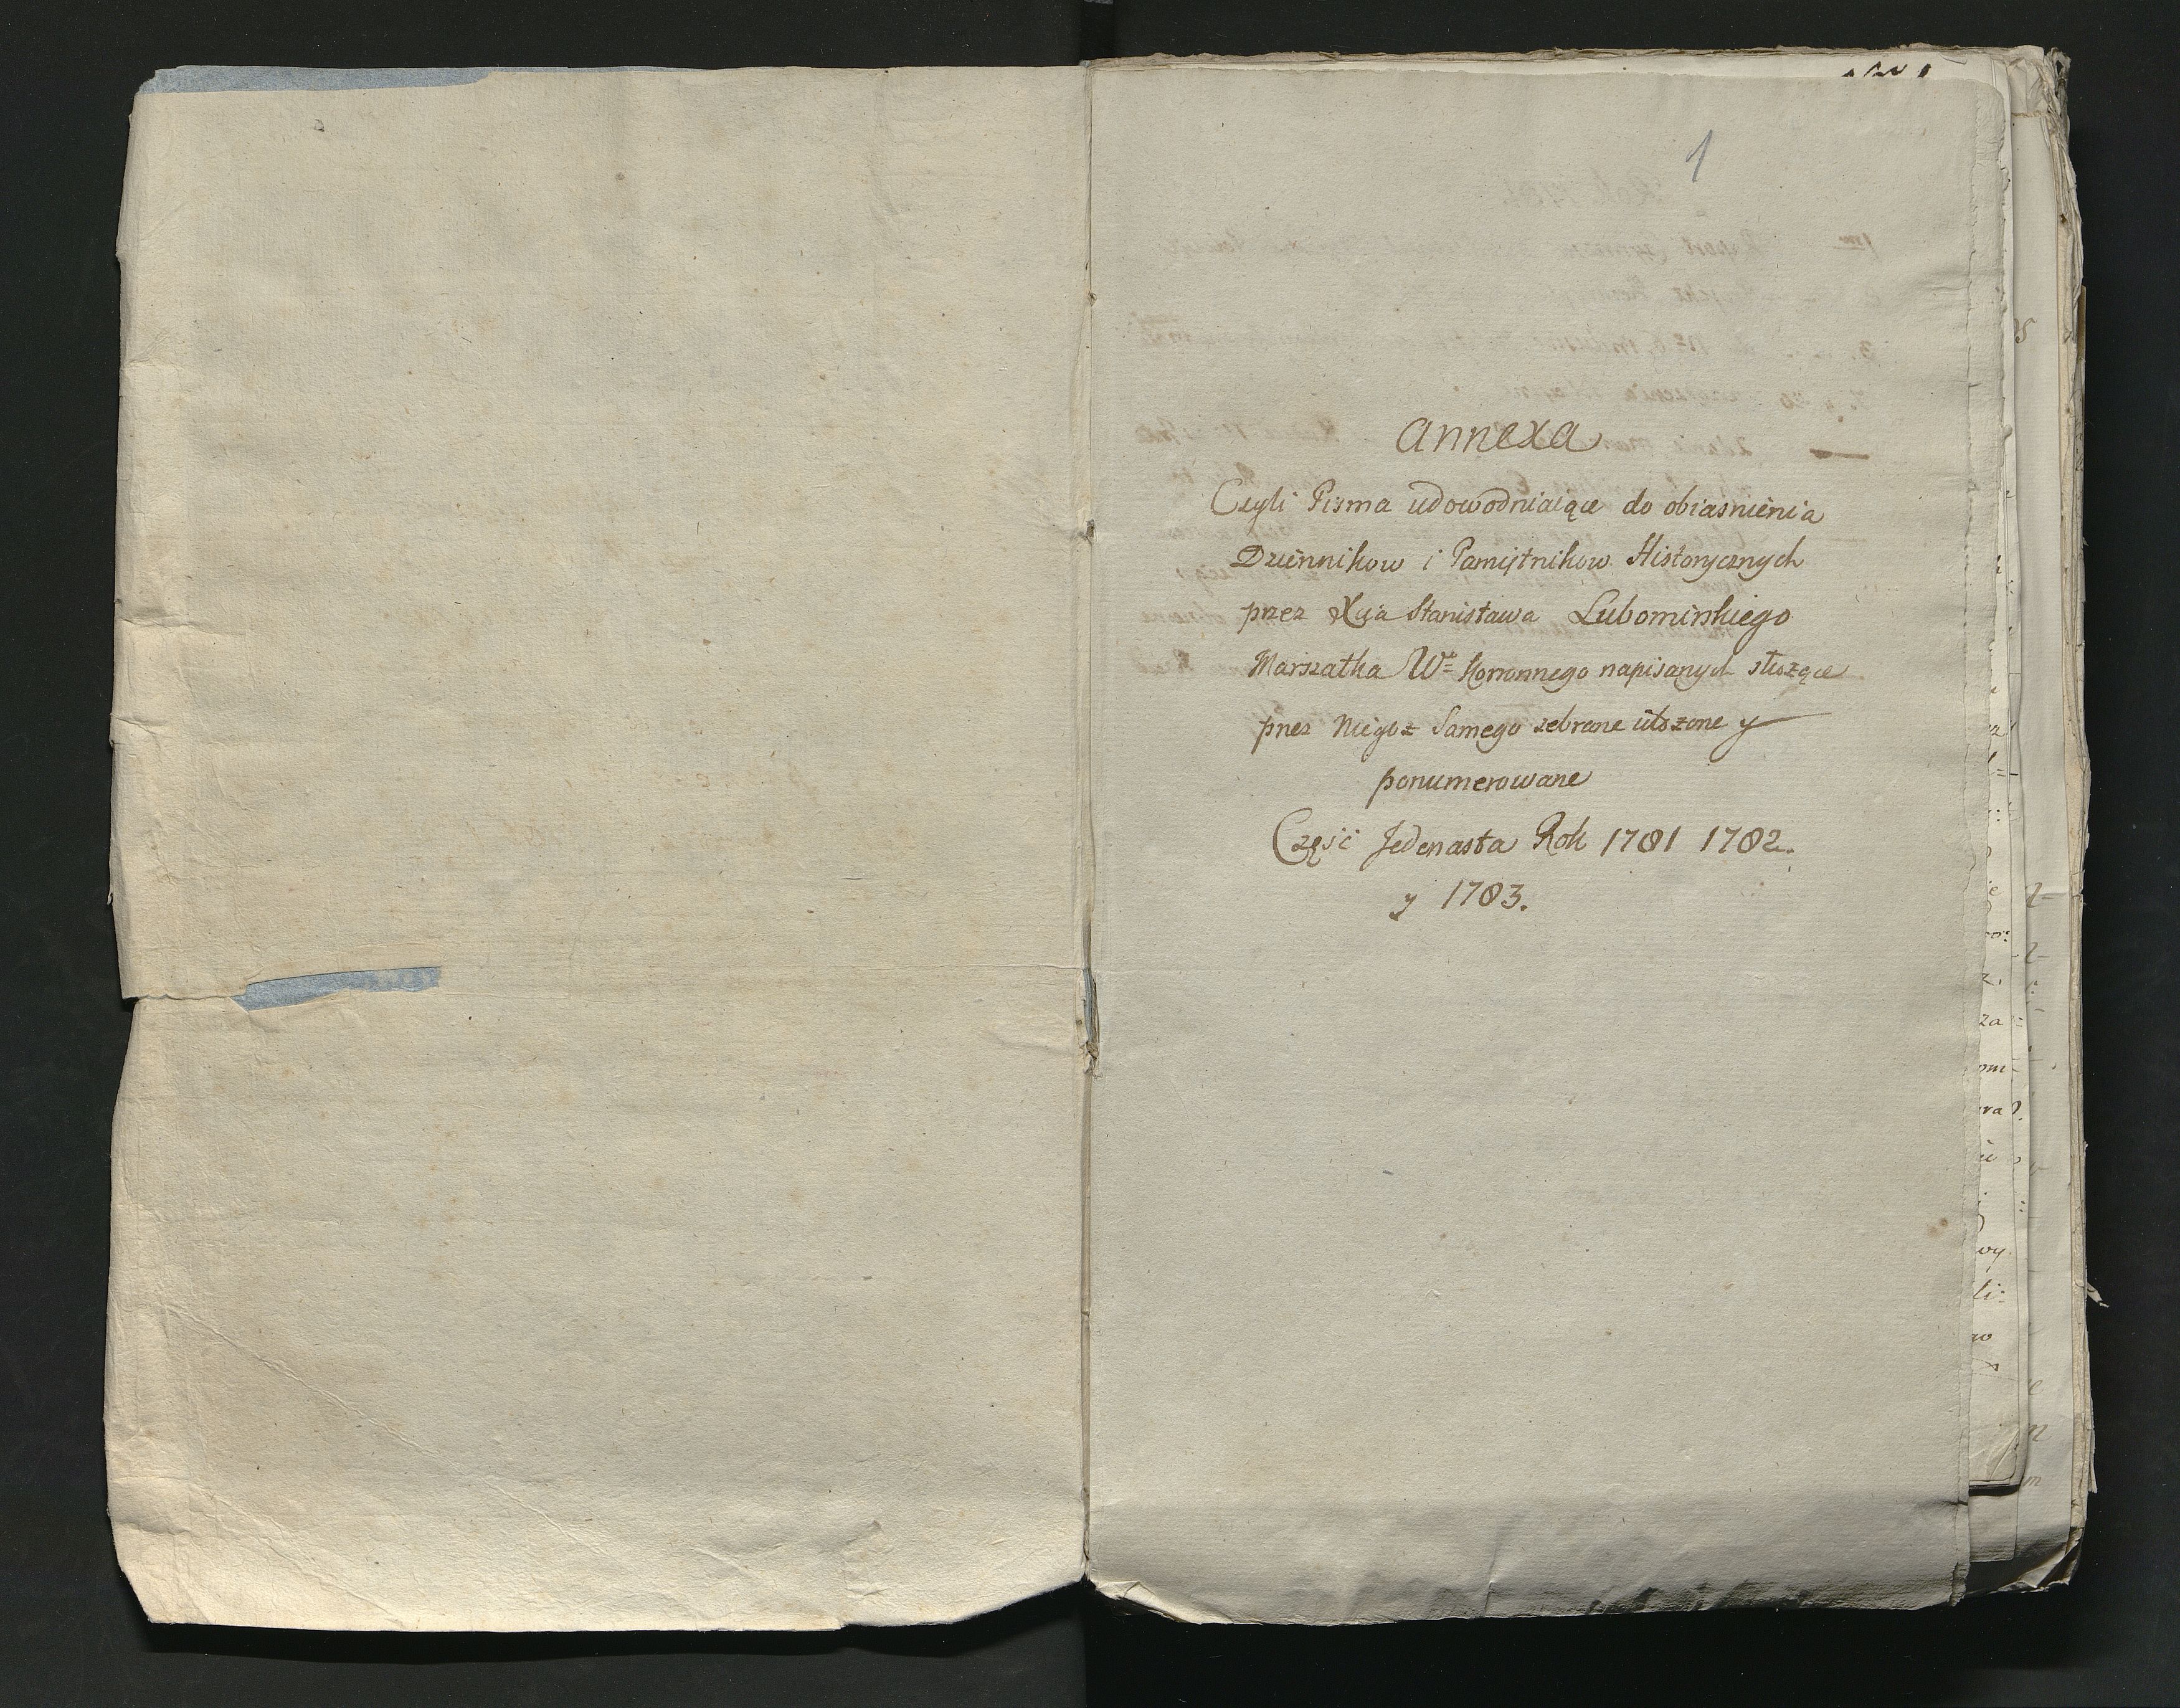 1
Annexa
Czyli Pisma udowodniaiące do obiasnienia
Dziennikow i Pamiętnikow Historycznych
przez Xcia Stanisława Lubomirskiego
Marszałka Wº Koronnego napisanych słuzące
przez Niegoż Samego zebrane ułozone y
ponumerowane
Część Jedenasta Rok 1781 1782.
y 1783.